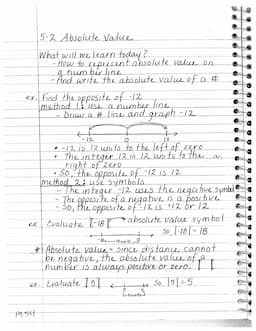 5-2 Absolute Value
What will we learn today?
- How to represent absolute value on
a number line
- And write the absolute value of a #
ex. Find the opposite of -12
method 1: use a number line
- Draw a # line and graph -12
-12 0
• -12 is 12 units to the left of zero
• The integer 12 is 12 units to the
right of zero
• So, the opposite of -12 is 12
method 2: use symbols
- The integer -12 uses the negative symbol
- The opposite of a negative is a positive
- So, the opposite of -12 is +12 or 12
ex. Evaluate |-18| → absolute value symbol
So, |-18| = 18
* Absolute value - since distance cannot
be negative, the absolute value of a
number is always positive or zero. | |
ex. Evaluate |5| So, |5| = 5